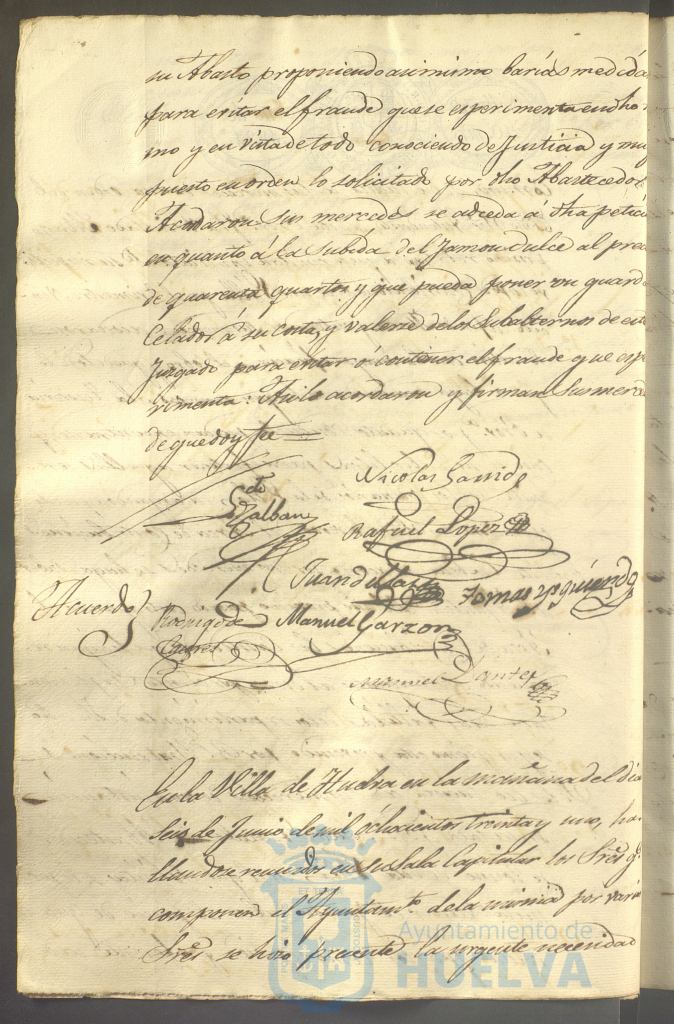 su Abasto proponiendo asimismo barias medida
para evitar el fraude que se esperimenta en dho
mo y en vista de todo conociendo de Justicia y muy
puesto en orden lo solicitado por dho Abastecedor
Acordaron sus mercedes se acceda á dha petici
en quanto á la subida del Jamon dulce al prec
de quarenta quartos y que pueda poner un guarda
Celador á su costa, y valerse de los Subalternos de este
Juzgado para evitar ó contener el fraude que espe
rimenta: Asi lo acordaron y firman sus merce
de que doy fee
Nicolas Garrido
Zalban
Rafael Lopez
Juan de
Tomas Ysquierdo
Acuerdo
Rodrigo de
Manuel Garzon
Manuel
En la Villa de Huelva en la mañana del dia
seis de Junio de mil ochocientos treinta y uno, ha
llandose reunidos en su Sala Capitular los Sres q.
componen el Ayuntamto. de la misma por varios
Sres. se hizo presente la urgente necesidad
Ayuntamiento de
HUELVA